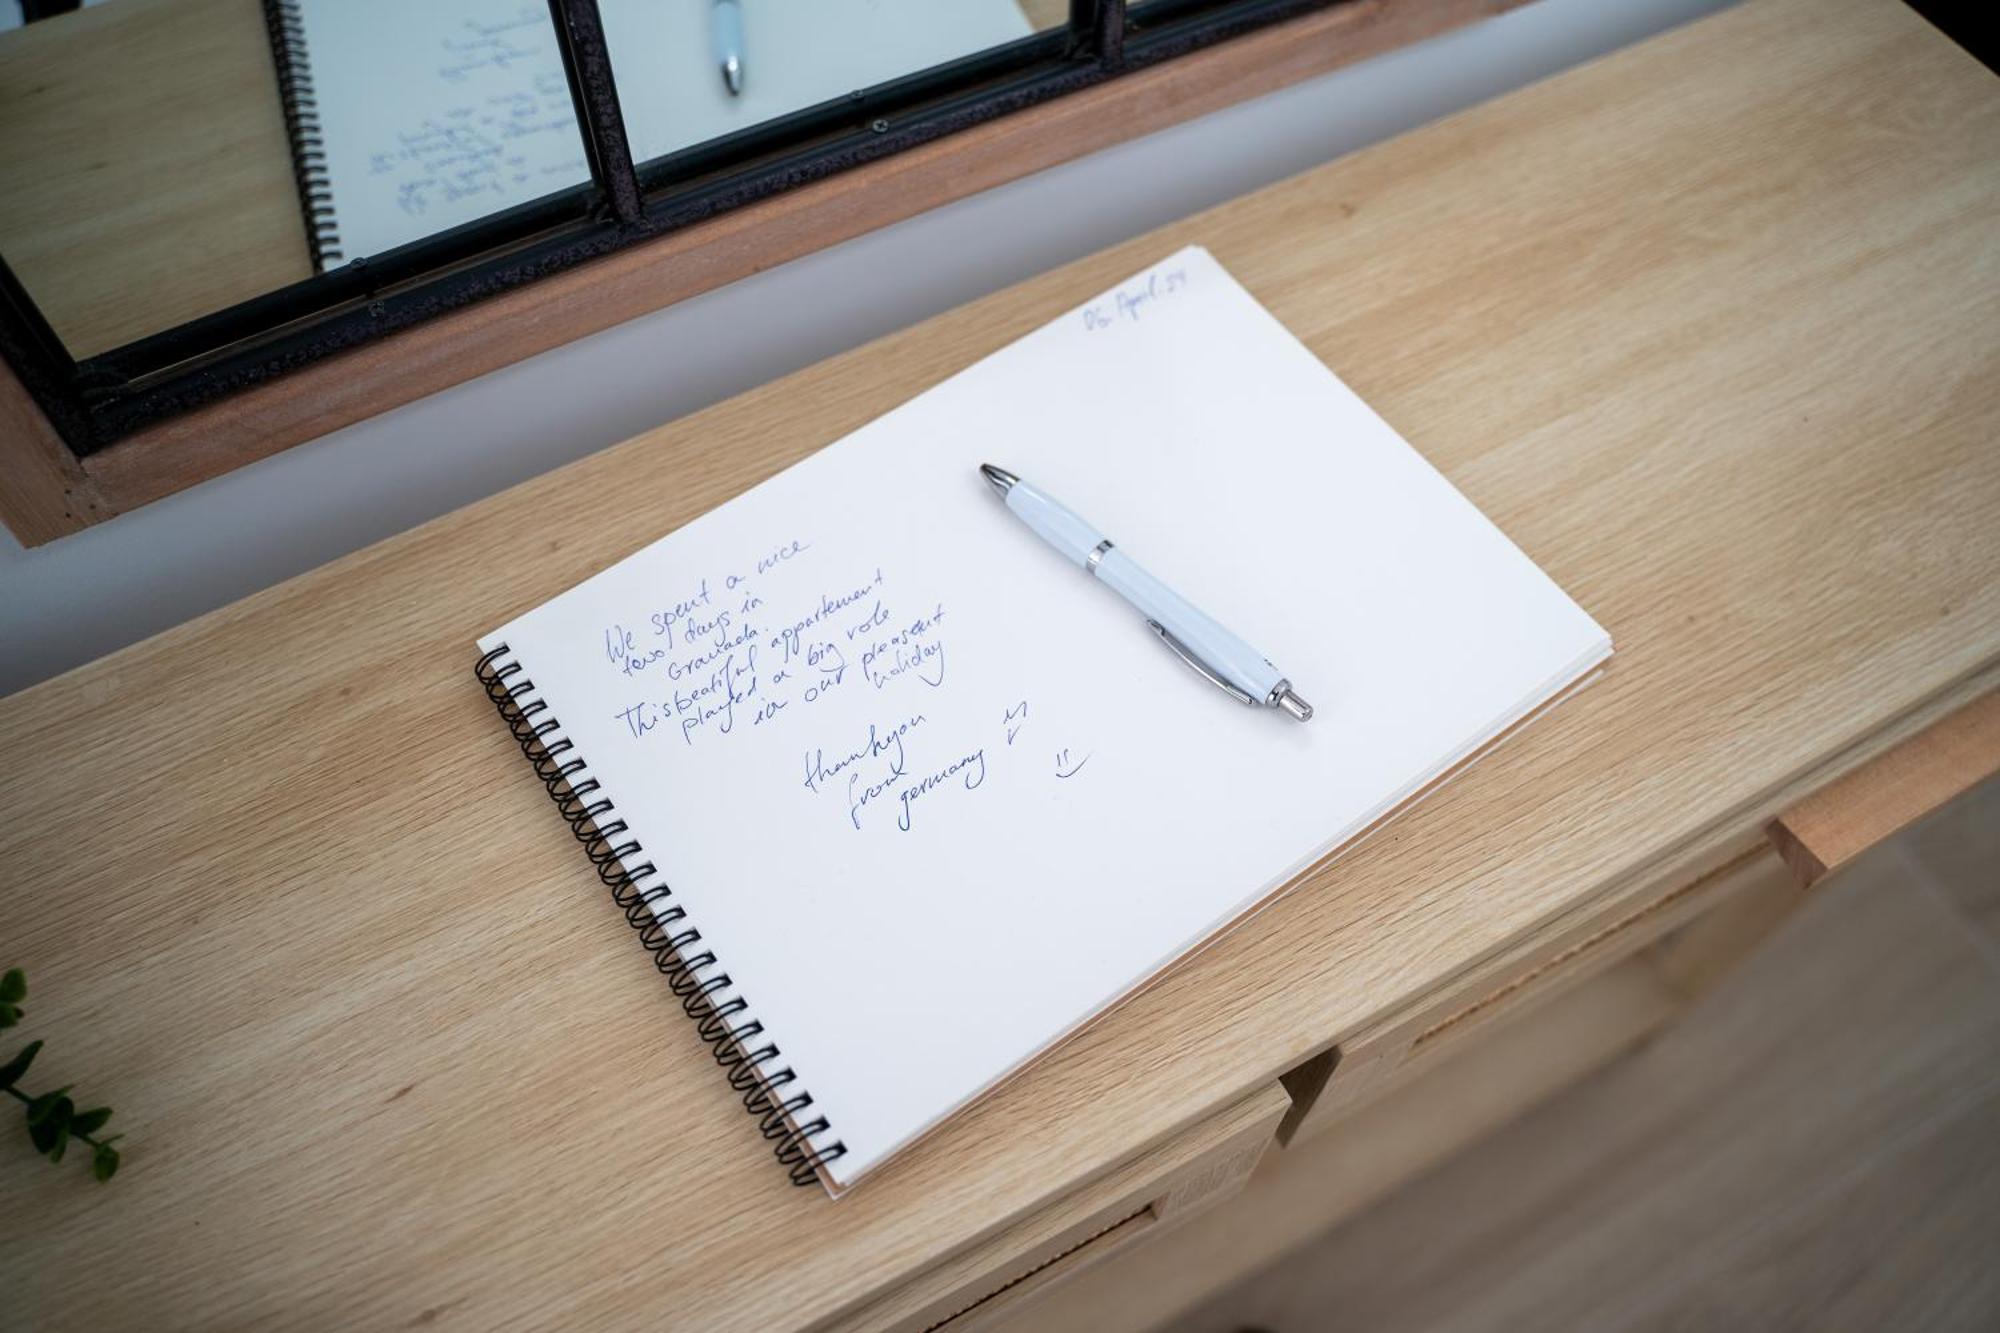 05. April. 24
We spent a nice
two days in
Granada.
This beatiful appartement
played a big role
in our pleasent
holiday
thankyou
from
germany